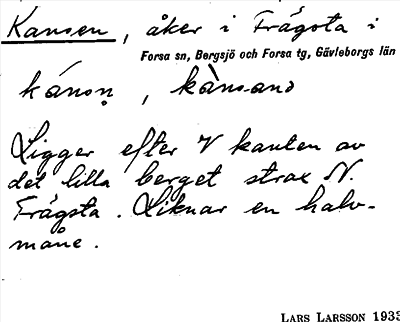 Kansen, åker i Frägsta i
Forsa sn, Bergsjö och Forsa tg, Gävleborgs län
Ligger efter V kanten av
det lilla berget strax N.
Frägsta. Liknar en halv-
måne.
LARS LARSSON 1933